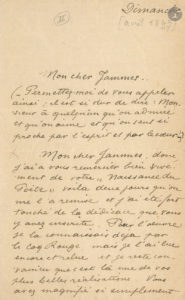 Dimanche
Mon cher Jammes.
(— Permettez-moi de vous appeler
ainsi, il est si dur de dire : Mon-
sieur à quelqu'un qu'on admire
et qu'on aime et qu'on sent si
proche par l'esprit et par le cœur —)
Mon cher Jammes, donc
j'ai à vous remercier bien vive-
ment de votre "Naissance du
Poète" voilà deux jours qu'on
me l'a remise et j'ai été fort
touché de la dédicace que vous
y avez inscrite. Pour l'œuvre
je la connaissais déjà par
le Coq Rouge mais je l'ai lue
encore et relue et je reste con-
vaincu que c'est là une de vos
plus belles réalisations. Vous
avez magnifié si simplement